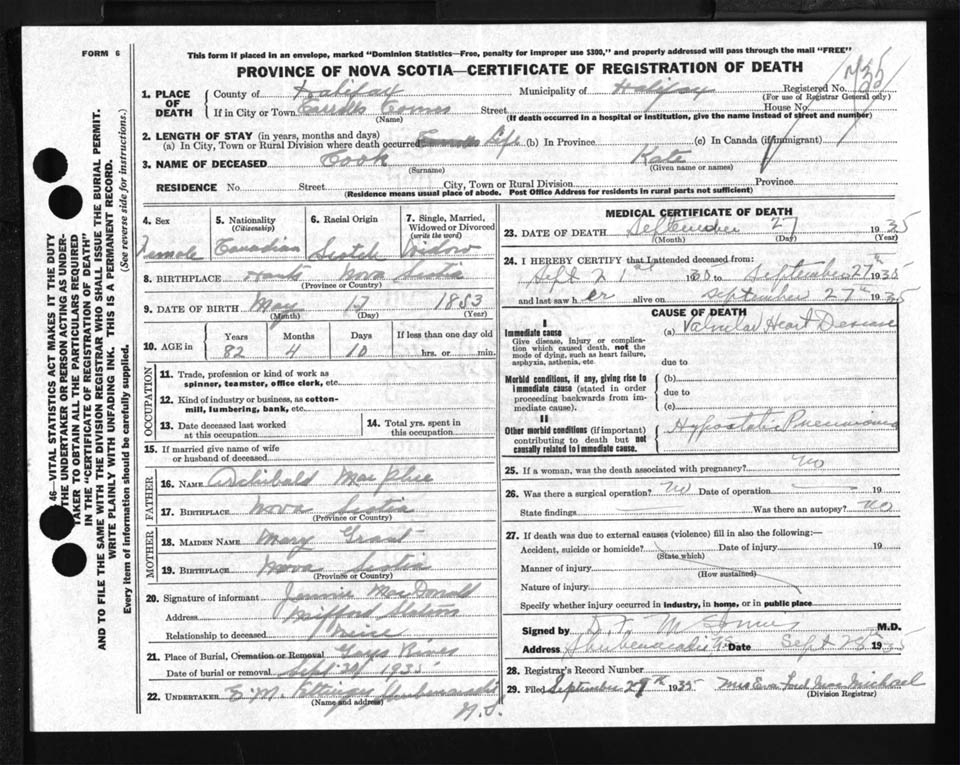 FORM 6
This form if placed in an envelope, marked "Dominion Statistics—Free, penalty for improper use $300," and properly addressed will pass through the mail "FREE"
PROVINCE OF NOVA SCOTIA—CERTIFICATE OF REGISTRATION OF DEATH
1. PLACE OF DEATH
County of Halifax Municipality of Halifax Registered No.
(For use of Registrar General only)
If in City or Town Carrolls Corner Street House No.
(Name) (If death occurred in a hospital or institution, give the name instead of street and number)
2. LENGTH OF STAY (in years, months and days)
(a) In City, Town or Rural Division where death occurred Life (b) In Province (c) In Canada (if immigrant)
3. NAME OF DECEASED Cook Kate
(Surname) (Given name or names)
RESIDENCE No. Street City, Town or Rural Division Province
(Residence means usual place of abode. Post Office Address for residents in rural parts not sufficient)
4. Sex
Female
5. Nationality
(Citizenship)
Canadian
6. Racial Origin
Scotch
7. Single, Married, Widowed or Divorced
(write the word)
Widow
8. BIRTHPLACE Hants Nova Scotia
(Province or Country)
9. DATE OF BIRTH May 17 1853
(Month) (Day) (Year)
10. AGE in
Years Months Days If less than one day old
82 4 10 hrs. or min.
OCCUPATION
11. Trade, profession or kind of work as
spinner, teamster, office clerk, etc.
12. Kind of industry or business, as cotton-
mill, lumbering, bank, etc.
13. Date deceased last worked
at this occupation
14. Total yrs. spent in
this occupation
15. If married give name of wife
or husband of deceased
FATHER
16. NAME Archibald MacPhee
17. BIRTHPLACE Nova Scotia
(Province or Country)
MOTHER
18. MAIDEN NAME Mary Grant
19. BIRTHPLACE Nova Scotia
(Province or Country)
20. Signature of informant Jennie MacDonald
Address Milford Station
Relationship to deceased Neice
21. Place of Burial, Cremation or Removal Gays River
Date of burial or removal Sept 1935
22. UNDERTAKER E. M. Ettinger Shubenacadie
(Name and address) N.S.
MEDICAL CERTIFICATE OF DEATH
23. DATE OF DEATH September 27 1935
(Month) (Day) (Year)
24. I HEREBY CERTIFY that I attended deceased from:
Sept 21st 1930 to September 27th 1935
and last saw her alive on September 27th 1935
CAUSE OF DEATH
I
Immediate cause
Give disease, injury or complica-
tion which caused death, not the
mode of dying, such as heart failure,
asphyxia, asthenia, etc.
(a) Valvular Heart Disease
due to
Morbid conditions, if any, giving rise to
immediate cause (stated in order
proceeding backwards from im-
mediate cause).
(b)
due to
(c)
II
Other morbid conditions (if important)
contributing to death but not
causally related to immediate cause.
Hypostatic Pneumonia
25. If a woman, was the death associated with pregnancy? no
26. Was there a surgical operation? no Date of operation 19
State findings Was there an autopsy? no
27. If death was due to external causes (violence) fill in also the following:—
Accident, suicide or homicide? Date of injury 19
(State which)
Manner of injury
(How sustained)
Nature of injury
Specify whether injury occurred in industry, in home, or in public place
Signed by M.D.
Address Shubenacadie NS Date Sept 28th 1935
28. Registrar's Record Number
29. Filed September 29th 1935 Mrs Ford MacMichael
(Division Registrar)
46—VITAL STATISTICS ACT MAKES IT THE DUTY
THE UNDERTAKER OR PERSON ACTING AS UNDER-
TAKER TO OBTAIN ALL THE PARTICULARS REQUIRED
IN THE "CERTIFICATE OF REGISTRATION OF DEATH"
AND TO FILE THE SAME WITH THE DIVISION REGISTRAR WHO SHALL ISSUE THE BURIAL PERMIT.
WRITE PLAINLY WITH UNFADING INK. THIS IS A PERMANENT RECORD.
Every item of information should be carefully supplied. (See reverse side for instructions.)